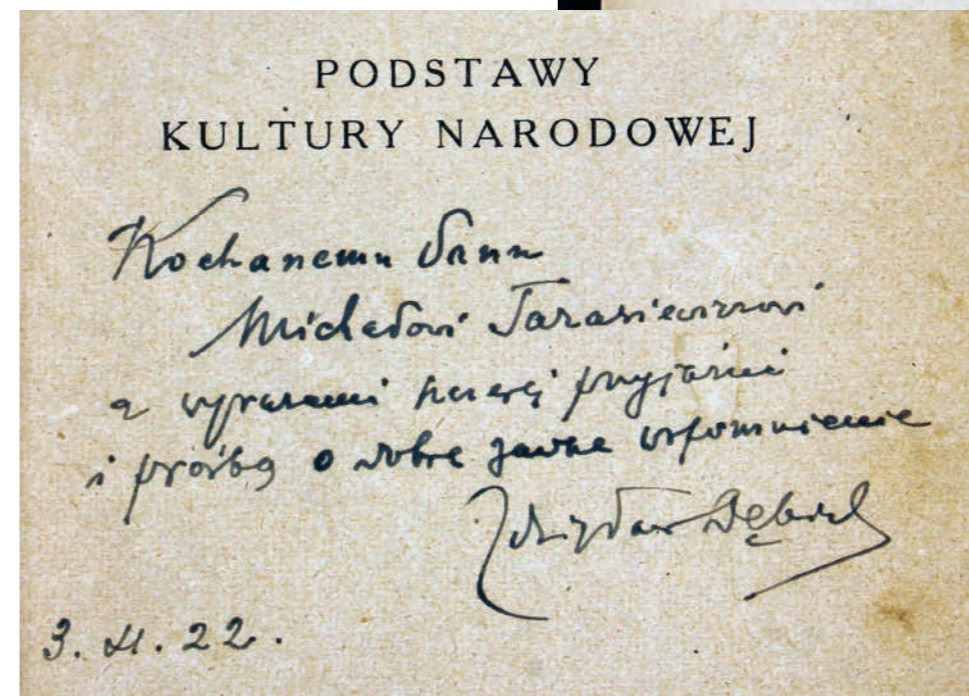 PODSTAWY
KULTURY NARODOWEJ
Kochanemu Panu
Michałowi Tarasiewiczowi
z wyrazami szczerej przyjaźni
i prośbą o dobre zawsze wspomnienie
Zdzisław Dębicki
3. XI. 22.